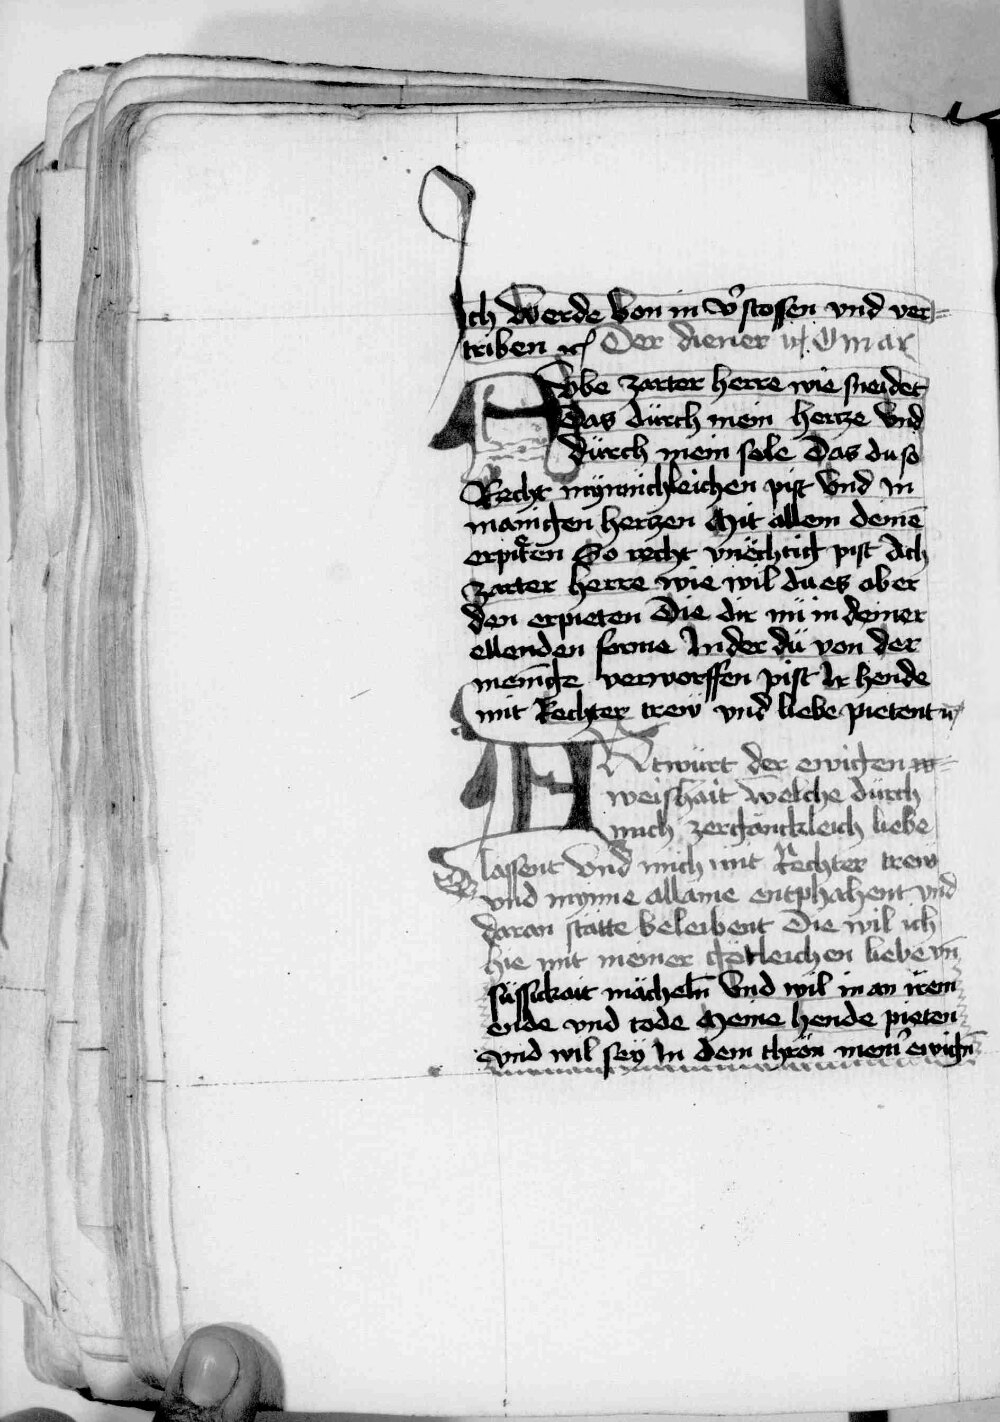 Ich werde von in v̉stossen vnd ver=
triben ꝛc Der diener
Lybe zarter herre wie sneidet
Das dürch mein hertze vnd
dürch mein sele Das du so
Recht mÿnnichleichen pist vnd in
manigen hertzen Mit allem deinē
erpiten So recht vnëchtig pist Ach
zarter herre wie wil du es aber
den erpieten Die dir nü in deiner
ellenden forme In der dü von der
menige verworffen pist Ir hende
mit Rechter trew vnd liebe pietent
Antwürt der ewigen
weishäit welche dürch
mich zergänckleich liebe
lassent vnd mich mit Rechter trew
vnd mÿnne allaine entphahent vnd
daran stätte beleibent Die wil ich
hie mit meiner götleichen liebe vn̄
süssickait mächeln̄ vnd wil in an irem
ende vnd tode Meine hende pieten
vnd wil sey In dem thrön mein̉ ewign̄